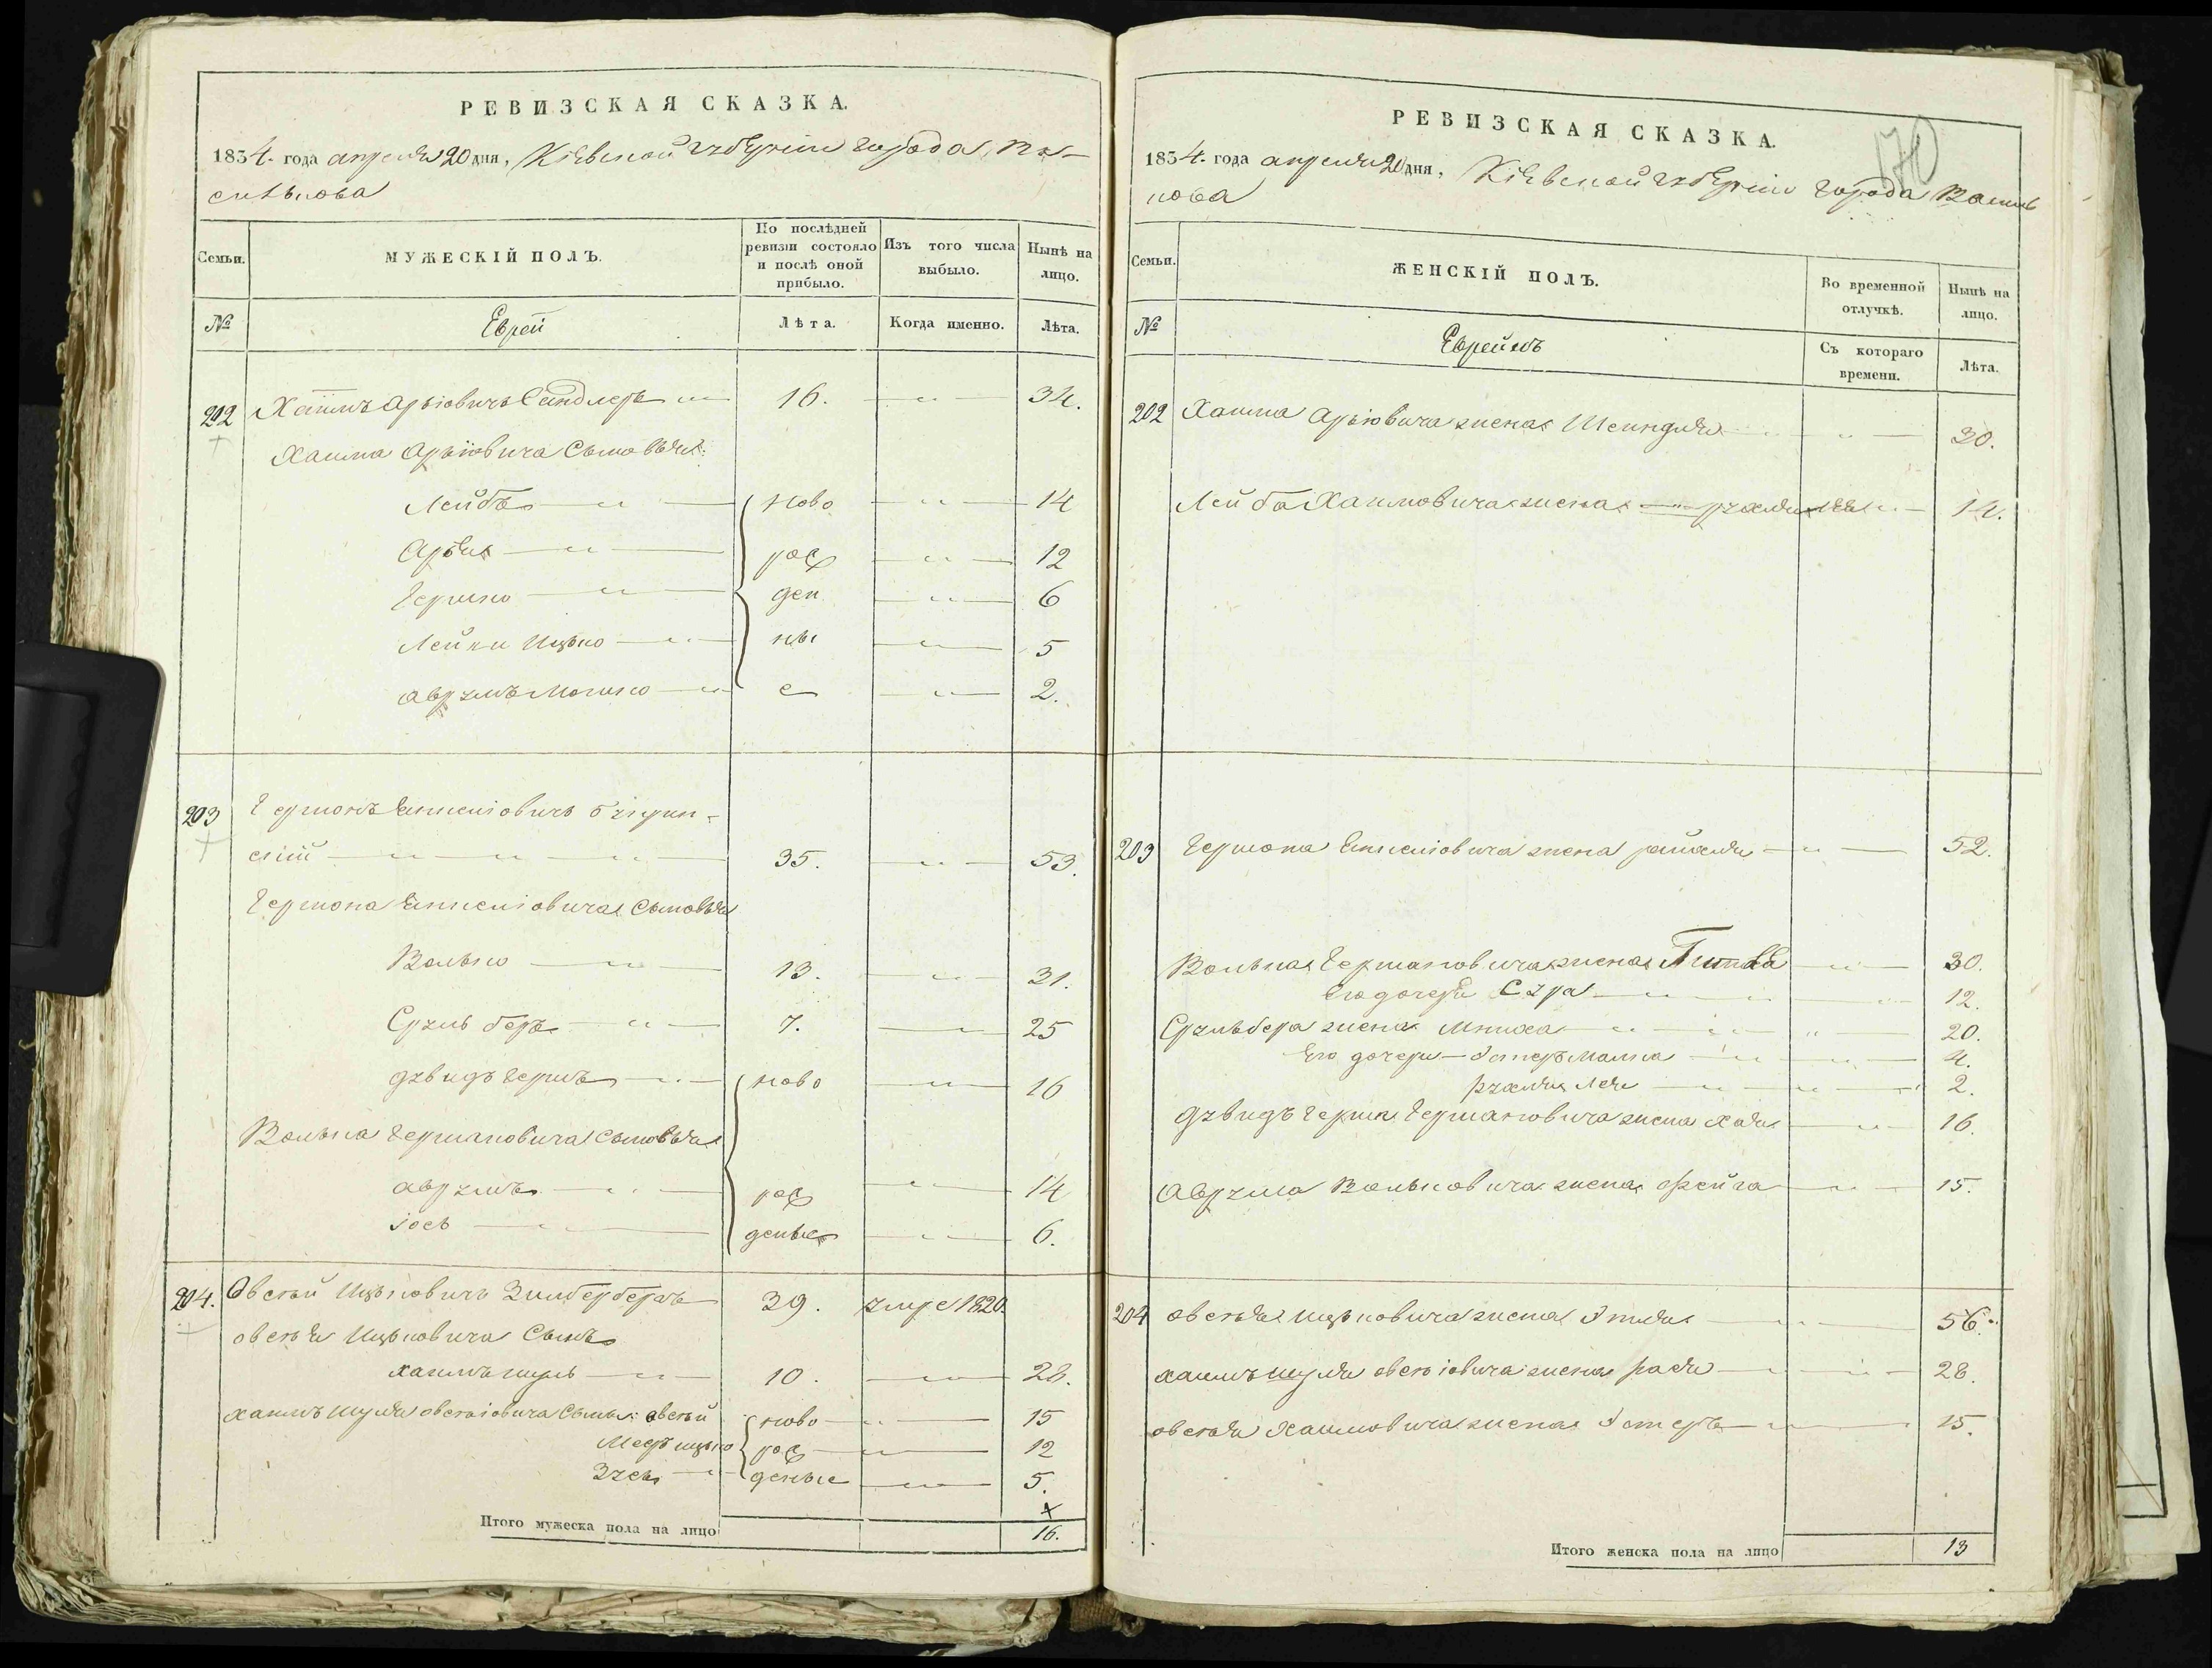 РЕВИЗСКАЯ СКАЗКА.
1834. года апреля 20 дня, Кіевской губерніи города Ва-
силькова
Семьи.
МУЖЕСКІЙ ПОЛЪ.
По послѣдней ревизіи состояло и послѣ оной прибыло.
Изъ того числа выбыло.
Нынѣ на лицо.
№
Еврей
Лѣта.
Когда именно.
Лѣта.
202 Хаимъ Арьіовичъ Сандлеръ 16. 34.
Хаима Арьіовича Сыновья:
Лейба ново 14
Арья рож 12
Гершко ден 6
Лейки Ицько ны 5
Аврумъ Мошко е 2.
203 Гершонъ
скій 35. 53.
Гершона Сыновья
Волько 13. 31.
Сруль беръ 7. 25
Дувидъ Гершъ ново 16
Волька Гершановича Сыновья
Аврумъ рож 14
Іось деные 6.
204. Овсей Ицьковичъ Зильберберъ 39. умре 1820.
Овсея Ицьковича Сынъ
Хаимъ шуль 10. 28.
Хаимъ Шуля Овсеіовича Сыны: Овсей ново 15
Мееръ ицько рож 12
Зусь деные 5.
Итого мужеска пола на лицо 16.
РЕВИЗСКАЯ СКАЗКА.
170
1834. года апреля 20 дня, Кіевской губерніи города Василь
кова
Семьи.
ЖЕНСКІЙ ПОЛЪ.
Во временной отлучкѣ.
Нынѣ на лицо.
№
Евреимъ
Съ котораго времени.
Лѣта.
202 Хаима Арьіовича жена Шеиндля 30.
Лейба Хаимовича жена рухля 14.
203 Гершона жена райхля 52.
Волька Гершановича жена 30.
Его дочери Сура 12.
Срульбера жена 20.
Его дочери Эстеръ Малка 4.
рухля Лея 2.
Дувидъ Герша Гершановича жена Хая 16.
Аврума Вольковича жена Фейга 15.
204 Овсея Ицьковича жена Этля 56.
Хаимъ шуля Овсеіовича жена рася 28.
Овсея Хаимовича жена Эстеръ 15.
Итого женска пола на лицо 13